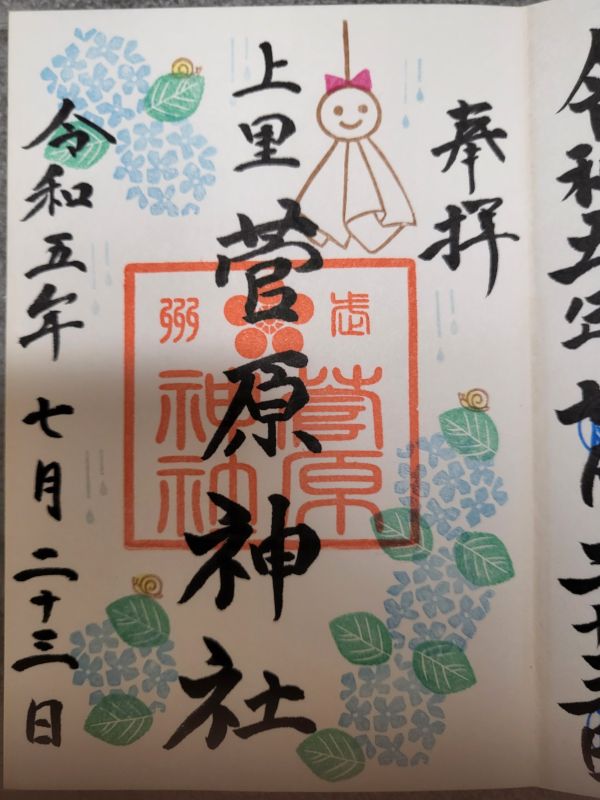 奉拝
上里
菅原神社
武州
菅原
神社
令和五年七月二十三日
令和五年七月二十三日